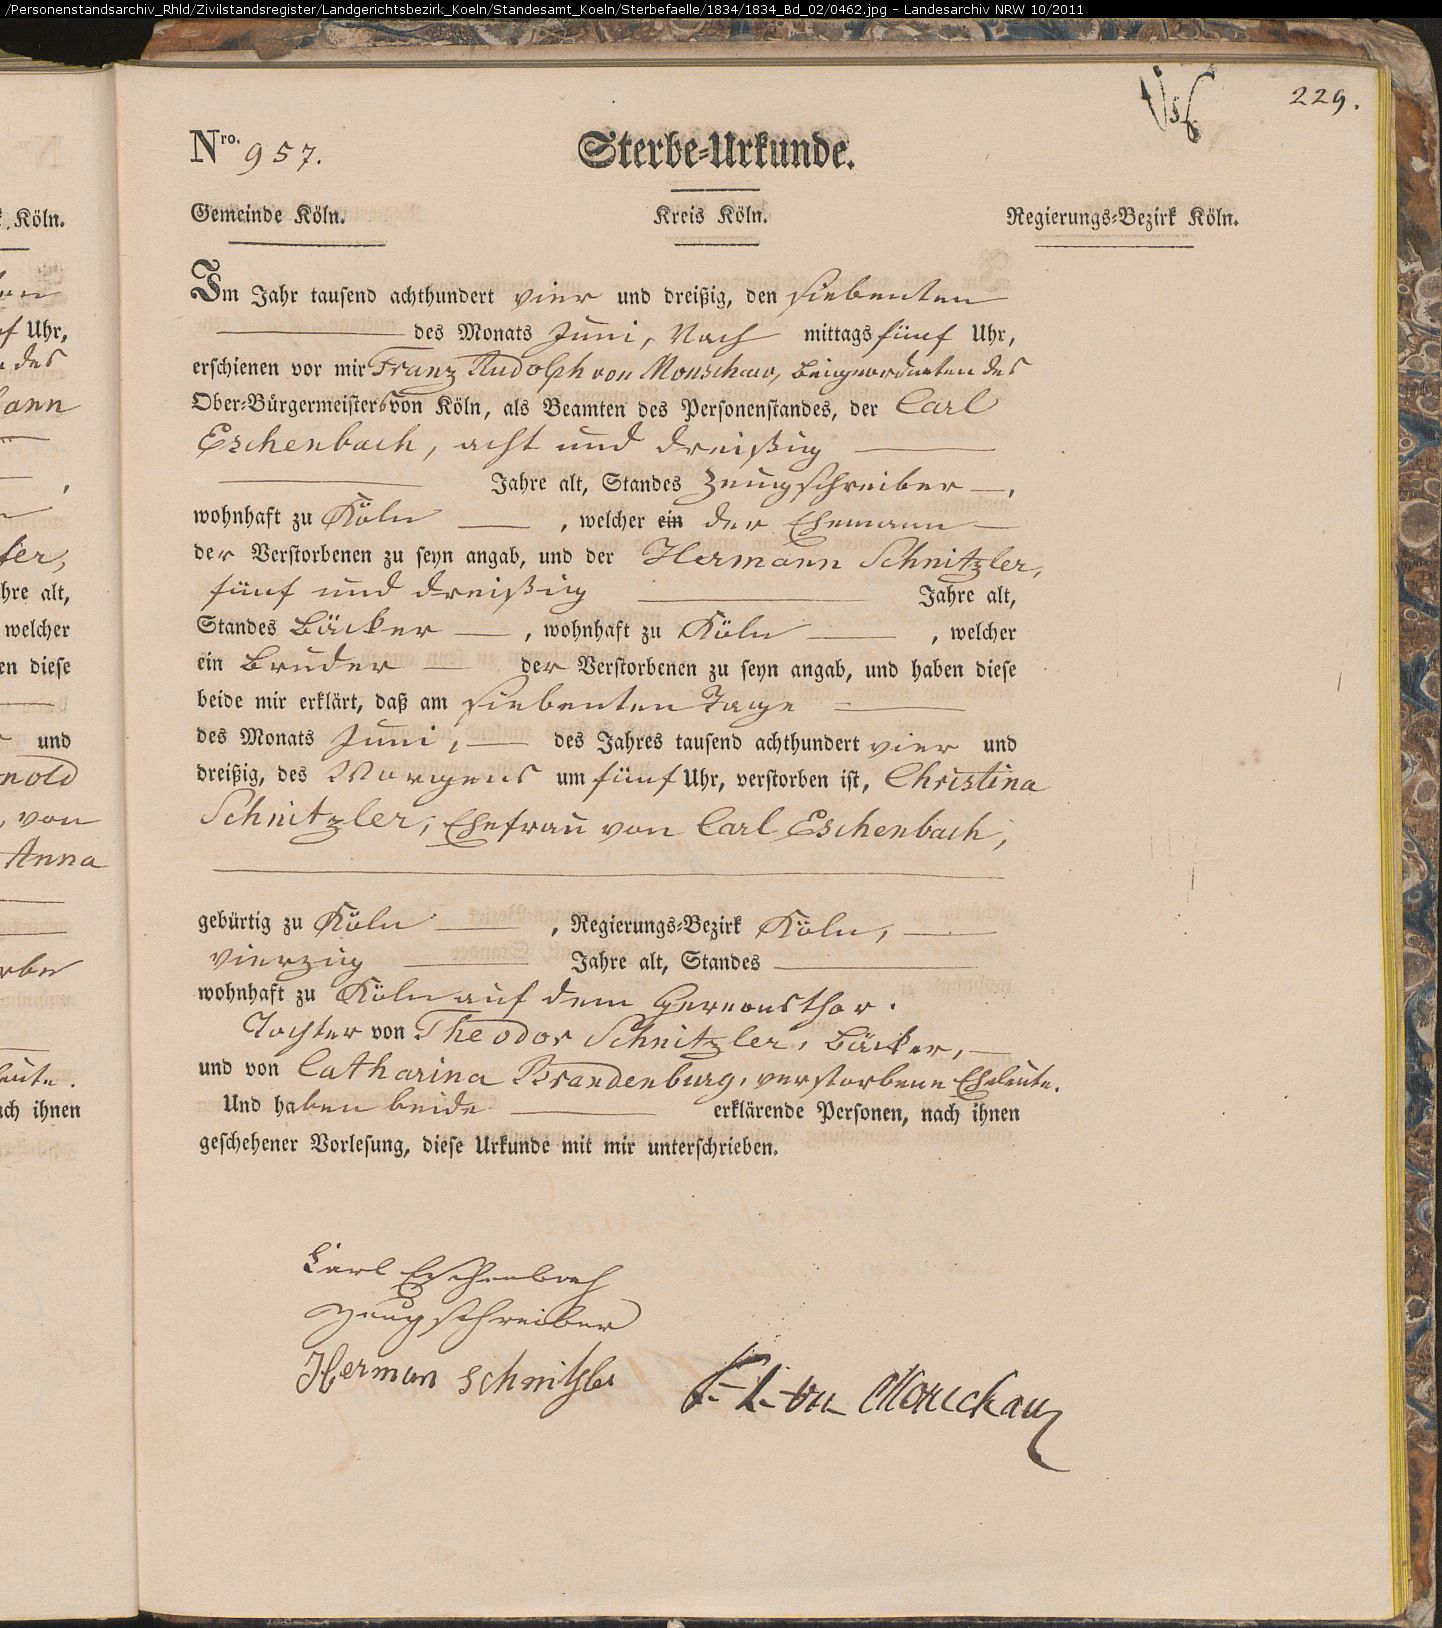 /Personenstandsarchiv_Rhld/Zivilstandsregister/Landgerichtsbezirk_Koeln/Standesamt_Koeln/Sterbefaelle/1834/1834_Bd_02/0462.jpg – Landesarchiv NRW 10/2011
229.
Nro. 957.
Sterbe-Urkunde.
Gemeinde Köln. Kreis Köln. Regierungs-Bezirk Köln.
Im Jahr tausend achthundert vier und dreißig, den siebenten
des Monats Juni, Nach mittags fünf Uhr,
erschienen vor mir Franz Rudolph von Monschaw, Beigeordneten des
Ober-Bürgermeisters von Köln, als Beamten des Personenstandes, der Carl
Eschenbach, acht und dreißig
Jahre alt, Standes Zeugschreiber —,
wohnhaft zu Köln —, welcher ein der Ehemann —
der Verstorbenen zu seyn angab, und der Hermann Schnitzler,
fünf und dreißig — Jahre alt,
Standes Bäcker —, wohnhaft zu Köln —, welcher
ein Bruder — der Verstorbenen zu seyn angab, und haben diese
beide mir erklärt, daß am siebenten Tage —
des Monats Juni, — des Jahres tausend achthundert vier und
dreißig, des Morgens um fünf Uhr, verstorben ist, Christina
Schnitzler, Ehefrau von Carl Eschenbach,
gebürtig zu Köln —, Regierungs-Bezirk Köln, —
vierzig — Jahre alt, Standes —
wohnhaft zu Köln auf dem Gereonsthor.
Tochter von Theodor Schnitzler, Bäcker, —
und von Catharina Brandenburg, verstorbene Eheleute.
Und haben beide — erklärende Personen, nach ihnen
geschehener Vorlesung, diese Urkunde mit mir unterschrieben.
Carl Eschenbach
Zeugschreiber
Herman Schnitzler
F. R. von Monschaw